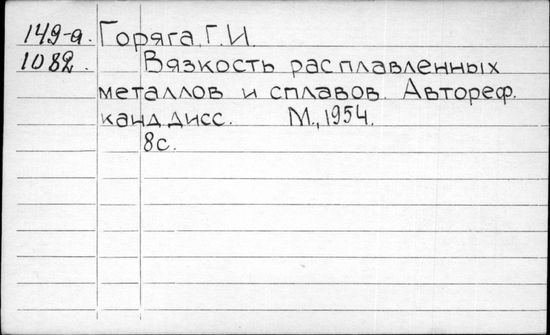 149-а. Горяга, Г.И.
1082. Вязкость расплавленных
металлов и сплавов. Автореф.
канд. дисс. М., 1954.
8с.